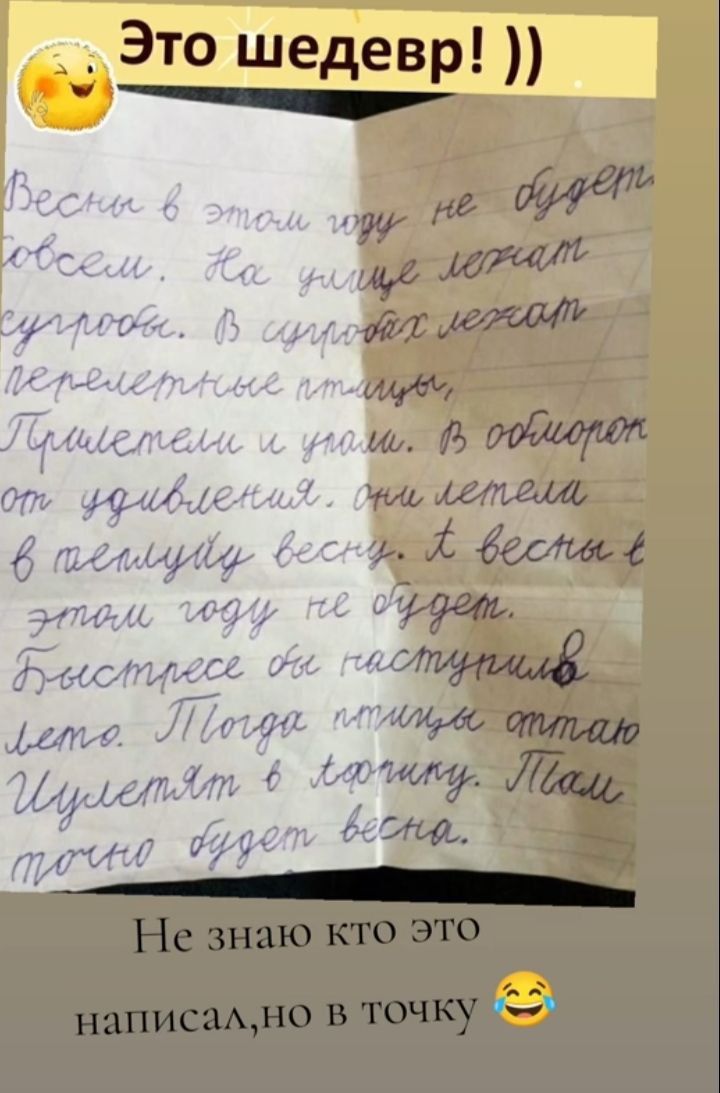 Это шедевр! ))
Весны в этом году не будет.
Совсем. На улице лежат
сугробы. В сугробах лежат
перелетные птицы,
Прилетели и упали. В обморок
от удивления. они летели
в теплуйу весну. А весны в
этом году не будет.
Быстресе бы наступило
лето. Тогда птицы оттаю
Иулетят в Африку. Там
точно будет весна.
Не знаю кто это
написал,но в точку 😂